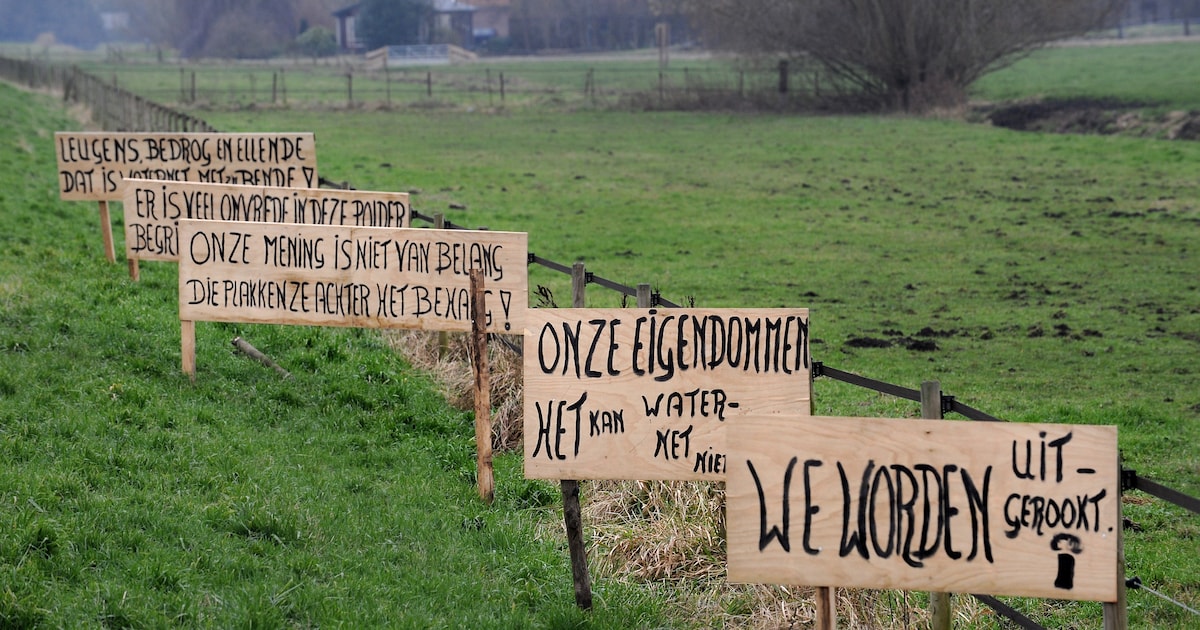 LEUGENS, BEDROG EN ELLENDE
DAT IS WATERNET MET ZIJN BENDE!
ER IS VEEL ONVREDE IN DEZE POLDER
BEGRI
ONZE MENING IS NIET VAN BELANG
DIE PLAKKEN ZE ACHTER HET BEHANG!
ONZE EIGENDOMMEN
HET KAN WATER-
NET NIET
WE WORDEN UIT-
GEROOKT.